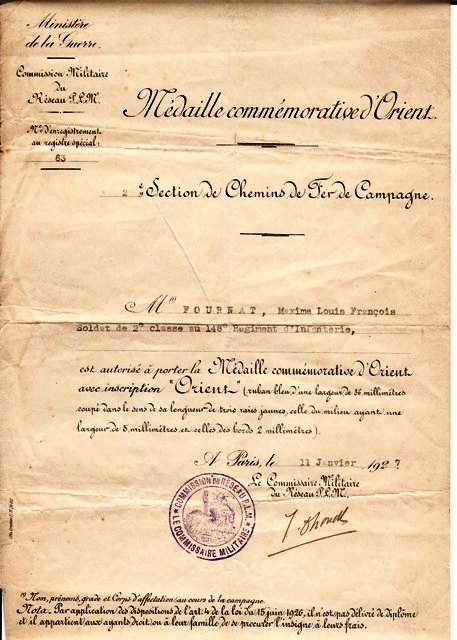 Ministère
de la Guerre.
Commission Militaire
du
Réseau P.L.M.
Nº d'enregistrement
au registre spécial:
63
Médaille commémorative d'Orient.
2e Section de Chemins de Fer de Campagne.
M(1) FOURNAT, Maxime Louis François
Soldat de 2° classe au 148° Regiment d'Infanterie,
est autorisé à porter la Médaille commémorative d'Orient
avec inscription "Orient" (ruban bleu d'une largeur de 36 millimètres
coupé dans le sens de sa longueur de trois raies jaunes, celle du milieu ayant une
largeur de 5 millimètres et celles des bords 2 millimètres).
A Paris, le 11 Janvier 1927
Le Commissaire Militaire
du Réseau P.L.M.
COMMISSION DU RÉSEAU P.L.M.
LE COMMISSAIRE MILITAIRE
(1) Nom, prénoms, grade et Corps d'affectation au cours de la campagne.
Nota - Par application des dispositions de l'art: 4 de la loi du 15 juin 1926, il n'est pas délivré de diplôme
et il appartient aux ayants droit ou à leur famille de se procurer l'insigne à leurs frais.